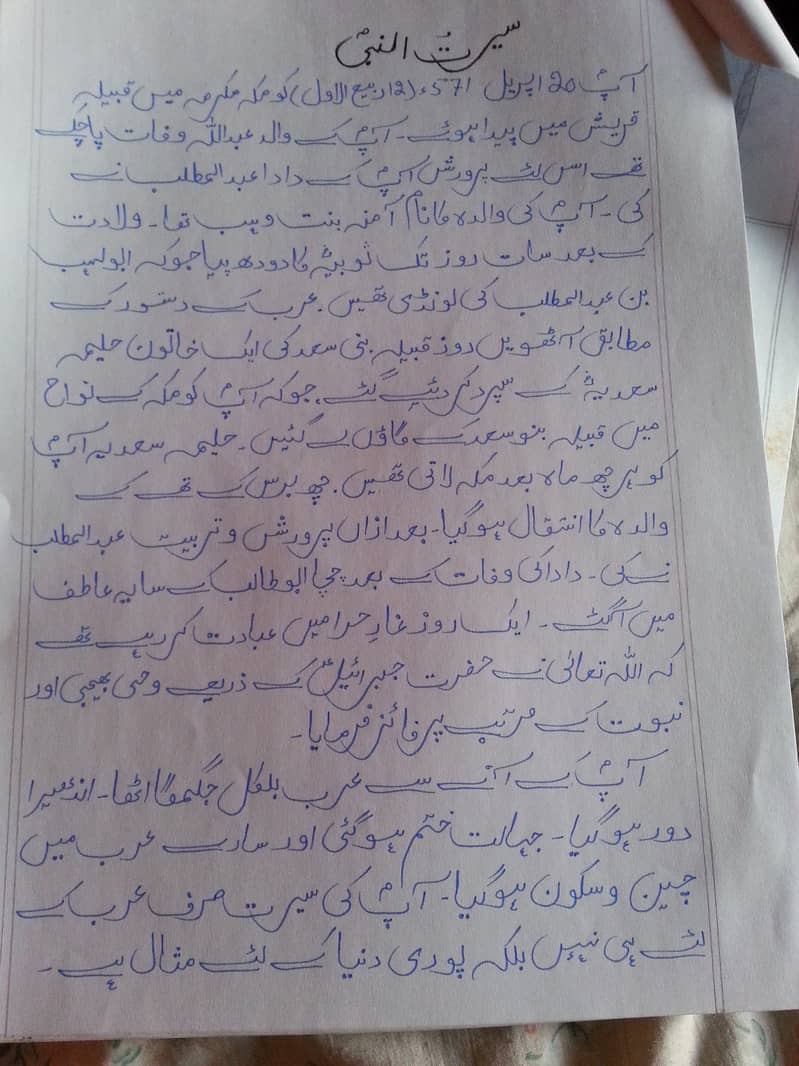 سیرتُ النبیؐ
آپؐ 20 اپریل 571ء (12 ربیع الاول) کو مکہ مکرمہ میں قبیلہ
قریش میں پیدا ہوئے۔ آپؐ کے والد عبداللہ وفات پا چکے
تھے اس لئے پرورش آپؐ کے دادا عبدالمطلب نے
کی۔ آپؐ کی والدہ کا نام آمنہ بنت وہب تھا۔ ولادت
کے بعد سات روز تک ثوبیہؓ کا دودھ پیا جو کہ ابولہب
بن عبدالمطلب کی لونڈی تھیں۔ عرب کے دستور کے
مطابق آٹھویں روز قبیلہ بنی سعد کی ایک خاتون حلیمہ
سعدیہؓ کے سپرد کر دئیے گئے، جو کہ آپؐ کو مکہ کے نواح
میں قبیلہ بنو سعد کے گاؤں لے گئیں۔ حلیمہ سعدیہ آپؐ
کو ہر چھ ماہ بعد مکہ لاتی تھیں۔ چھ برس کے تھے کے
والدہ کا انتقال ہوگیا۔ بعد ازاں پرورش و تربیت عبدالمطلب
نے کی۔ دادا کی وفات کے بعد چچا ابو طالب کے سایہ عاطف
میں آگئے۔ ایک روز غارِ حرا میں عبادت کر رہے تھے
کہ اللہ تعالیٰ نے حضرت جبرائیلؑ کے ذریعے وحی بھیجی اور
نبوت کے مرتبے پر فائز فرمایا۔
آپؐ کے آنے سے عرب بلکل جگمگا اٹھا۔ اندھیرا
دور ہو گیا۔ جہالت ختم ہو گئی اور سارے عرب میں
چین و سکون ہو گیا۔ آپؐ کی سیرت صرف عرب کے
لئے ہی نہیں بلکہ پوری دنیا کے لئے مثال ہے۔